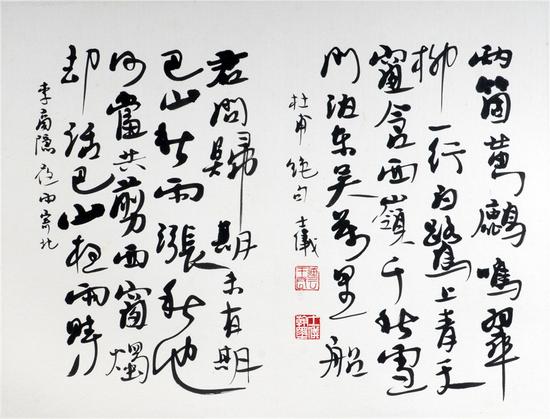 兩箇黃鸝鳴翠
柳一行白鷺上青天
窗含西嶺千秋雪
門泊東吳萬里船
杜甫絕句 士儀
君問歸期未有期
巴山夜雨漲秋池
何當共剪西窗燭
却話巴山夜雨時
李商隱夜雨寄北